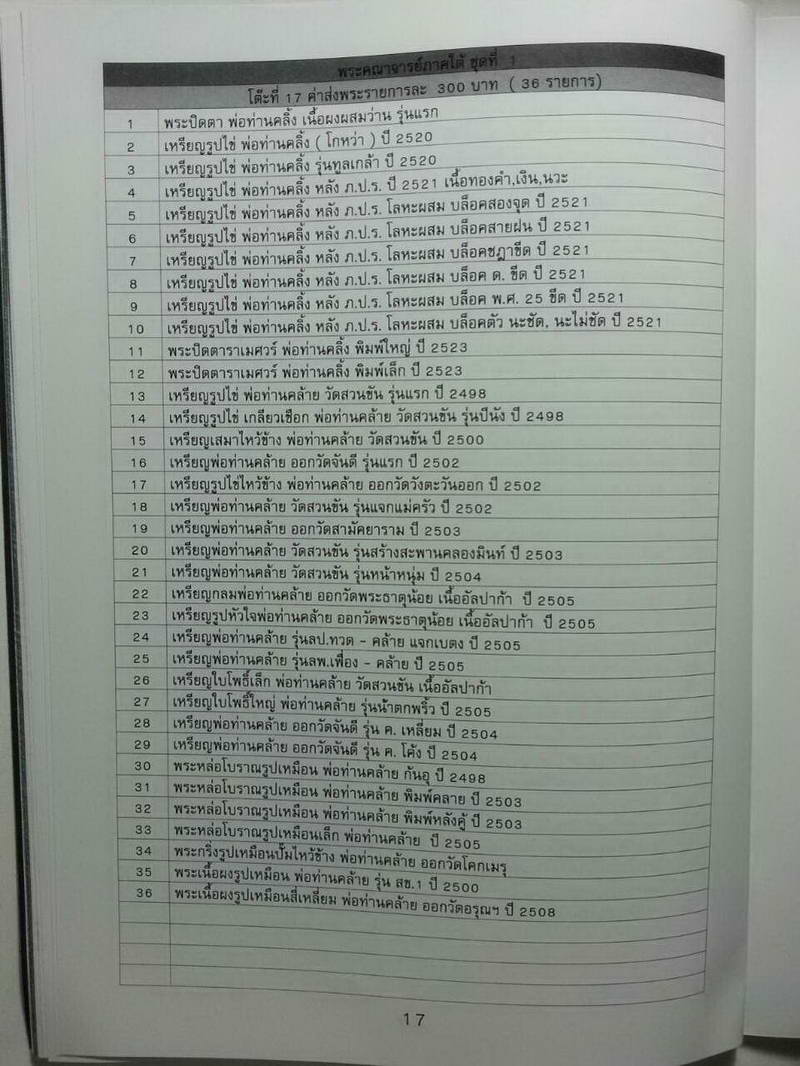 พระคณาจารย์ภาคใต้ ชุดที่ 1
โต๊ะที่ 17 ค่าส่งพระรายการละ 300 บาท ( 36 รายการ)
1 พระปิดตา พ่อท่านคลิ้ง เนื้อผงผสมว่าน รุ่นแรก
2 เหรียญรูปไข่ พ่อท่านคลิ้ง ( โกหว่า ) ปี 2520
3 เหรียญรูปไข่ พ่อท่านคลิ้ง รุ่นทูลเกล้า ปี 2520
4 เหรียญรูปไข่ พ่อท่านคลิ้ง หลัง ภ.ป.ร. ปี 2521 เนื้อทองคำ,เงิน,นวะ
5 เหรียญรูปไข่ พ่อท่านคลิ้ง หลัง ภ.ป.ร. โลหะผสม บล็อคสองจุด ปี 2521
6 เหรียญรูปไข่ พ่อท่านคลิ้ง หลัง ภ.ป.ร. โลหะผสม บล็อคสายฝน ปี 2521
7 เหรียญรูปไข่ พ่อท่านคลิ้ง หลัง ภ.ป.ร. โลหะผสม บล็อคชฎาขีด ปี 2521
8 เหรียญรูปไข่ พ่อท่านคลิ้ง หลัง ภ.ป.ร. โลหะผสม บล็อค ด. ขีด ปี 2521
9 เหรียญรูปไข่ พ่อท่านคลิ้ง หลัง ภ.ป.ร. โลหะผสม บล็อค พ.ศ. 25 ขีด ปี 2521
10 เหรียญรูปไข่ พ่อท่านคลิ้ง หลัง ภ.ป.ร. โลหะผสม บล็อคตัว นะชัด, นะไม่ชัด ปี 2521
11 พระปิดตาราเมศวร์ พ่อท่านคลิ้ง พิมพ์ใหญ่ ปี 2523
12 พระปิดตาราเมศวร์ พ่อท่านคลิ้ง พิมพ์เล็ก ปี 2523
13 เหรียญรูปไข่ พ่อท่านคล้าย วัดสวนขัน รุ่นแรก ปี 2498
14 เหรียญรูปไข่ เกลียวเชือก พ่อท่านคล้าย วัดสวนขัน รุ่นปีนัง ปี 2498
15 เหรียญเสมาไหว้ข้าง พ่อท่านคล้าย วัดสวนขัน ปี 2500
16 เหรียญพ่อท่านคล้าย ออกวัดจันดี รุ่นแรก ปี 2502
17 เหรียญรูปไข่ไหว้ข้าง พ่อท่านคล้าย ออกวัดวังตะวันออก ปี 2502
18 เหรียญพ่อท่านคล้าย วัดสวนขัน รุ่นแจกแม่ครัว ปี 2502
19 เหรียญพ่อท่านคล้าย ออกวัดสามัคยาราม ปี 2503
20 เหรียญพ่อท่านคล้าย วัดสวนขัน รุ่นสร้างสะพานคลองมินท์ ปี 2503
21 เหรียญพ่อท่านคล้าย วัดสวนขัน รุ่นหน้าหนุ่ม ปี 2504
22 เหรียญกลมพ่อท่านคล้าย ออกวัดพระธาตุน้อย เนื้ออัลปาก้า ปี 2505
23 เหรียญรูปหัวใจพ่อท่านคล้าย ออกวัดพระธาตุน้อย เนื้ออัลปาก้า ปี 2505
24 เหรียญพ่อท่านคล้าย รุ่นลป.ทวด - คล้าย แจกเบตง ปี 2505
25 เหรียญพ่อท่านคล้าย รุ่นลพ.เฟื่อง - คล้าย ปี 2505
26 เหรียญใบโพธิ์เล็ก พ่อท่านคล้าย วัดสวนขัน เนื้ออัลปาก้า
27 เหรียญใบโพธิ์ใหญ่ พ่อท่านคล้าย รุ่นน้ำตกพริ้ว ปี 2505
28 เหรียญพ่อท่านคล้าย ออกวัดจันดี รุ่น ค. เหลี่ยม ปี 2504
29 เหรียญพ่อท่านคล้าย ออกวัดจันดี รุ่น ค. โค้ง ปี 2504
30 พระหล่อโบราณรูปเหมือน พ่อท่านคล้าย ก้นอุ ปี 2498
31 พระหล่อโบราณรูปเหมือน พ่อท่านคล้าย พิมพ์คลาย ปี 2503
32 พระหล่อโบราณรูปเหมือน พ่อท่านคล้าย พิมพ์หลังคู้ ปี 2503
33 พระหล่อโบราณรูปเหมือนเล็ก พ่อท่านคล้าย ปี 2505
34 พระกริ่งรูปเหมือนปั๊มไหว้ข้าง พ่อท่านคล้าย ออกวัดโคกเมรุ
35 พระเนื้อผงรูปเหมือน พ่อท่านคล้าย รุ่น สข.1 ปี 2500
36 พระเนื้อผงรูปเหมือนสี่เหลี่ยม พ่อท่านคล้าย ออกวัดอรุณฯ ปี 2508
17